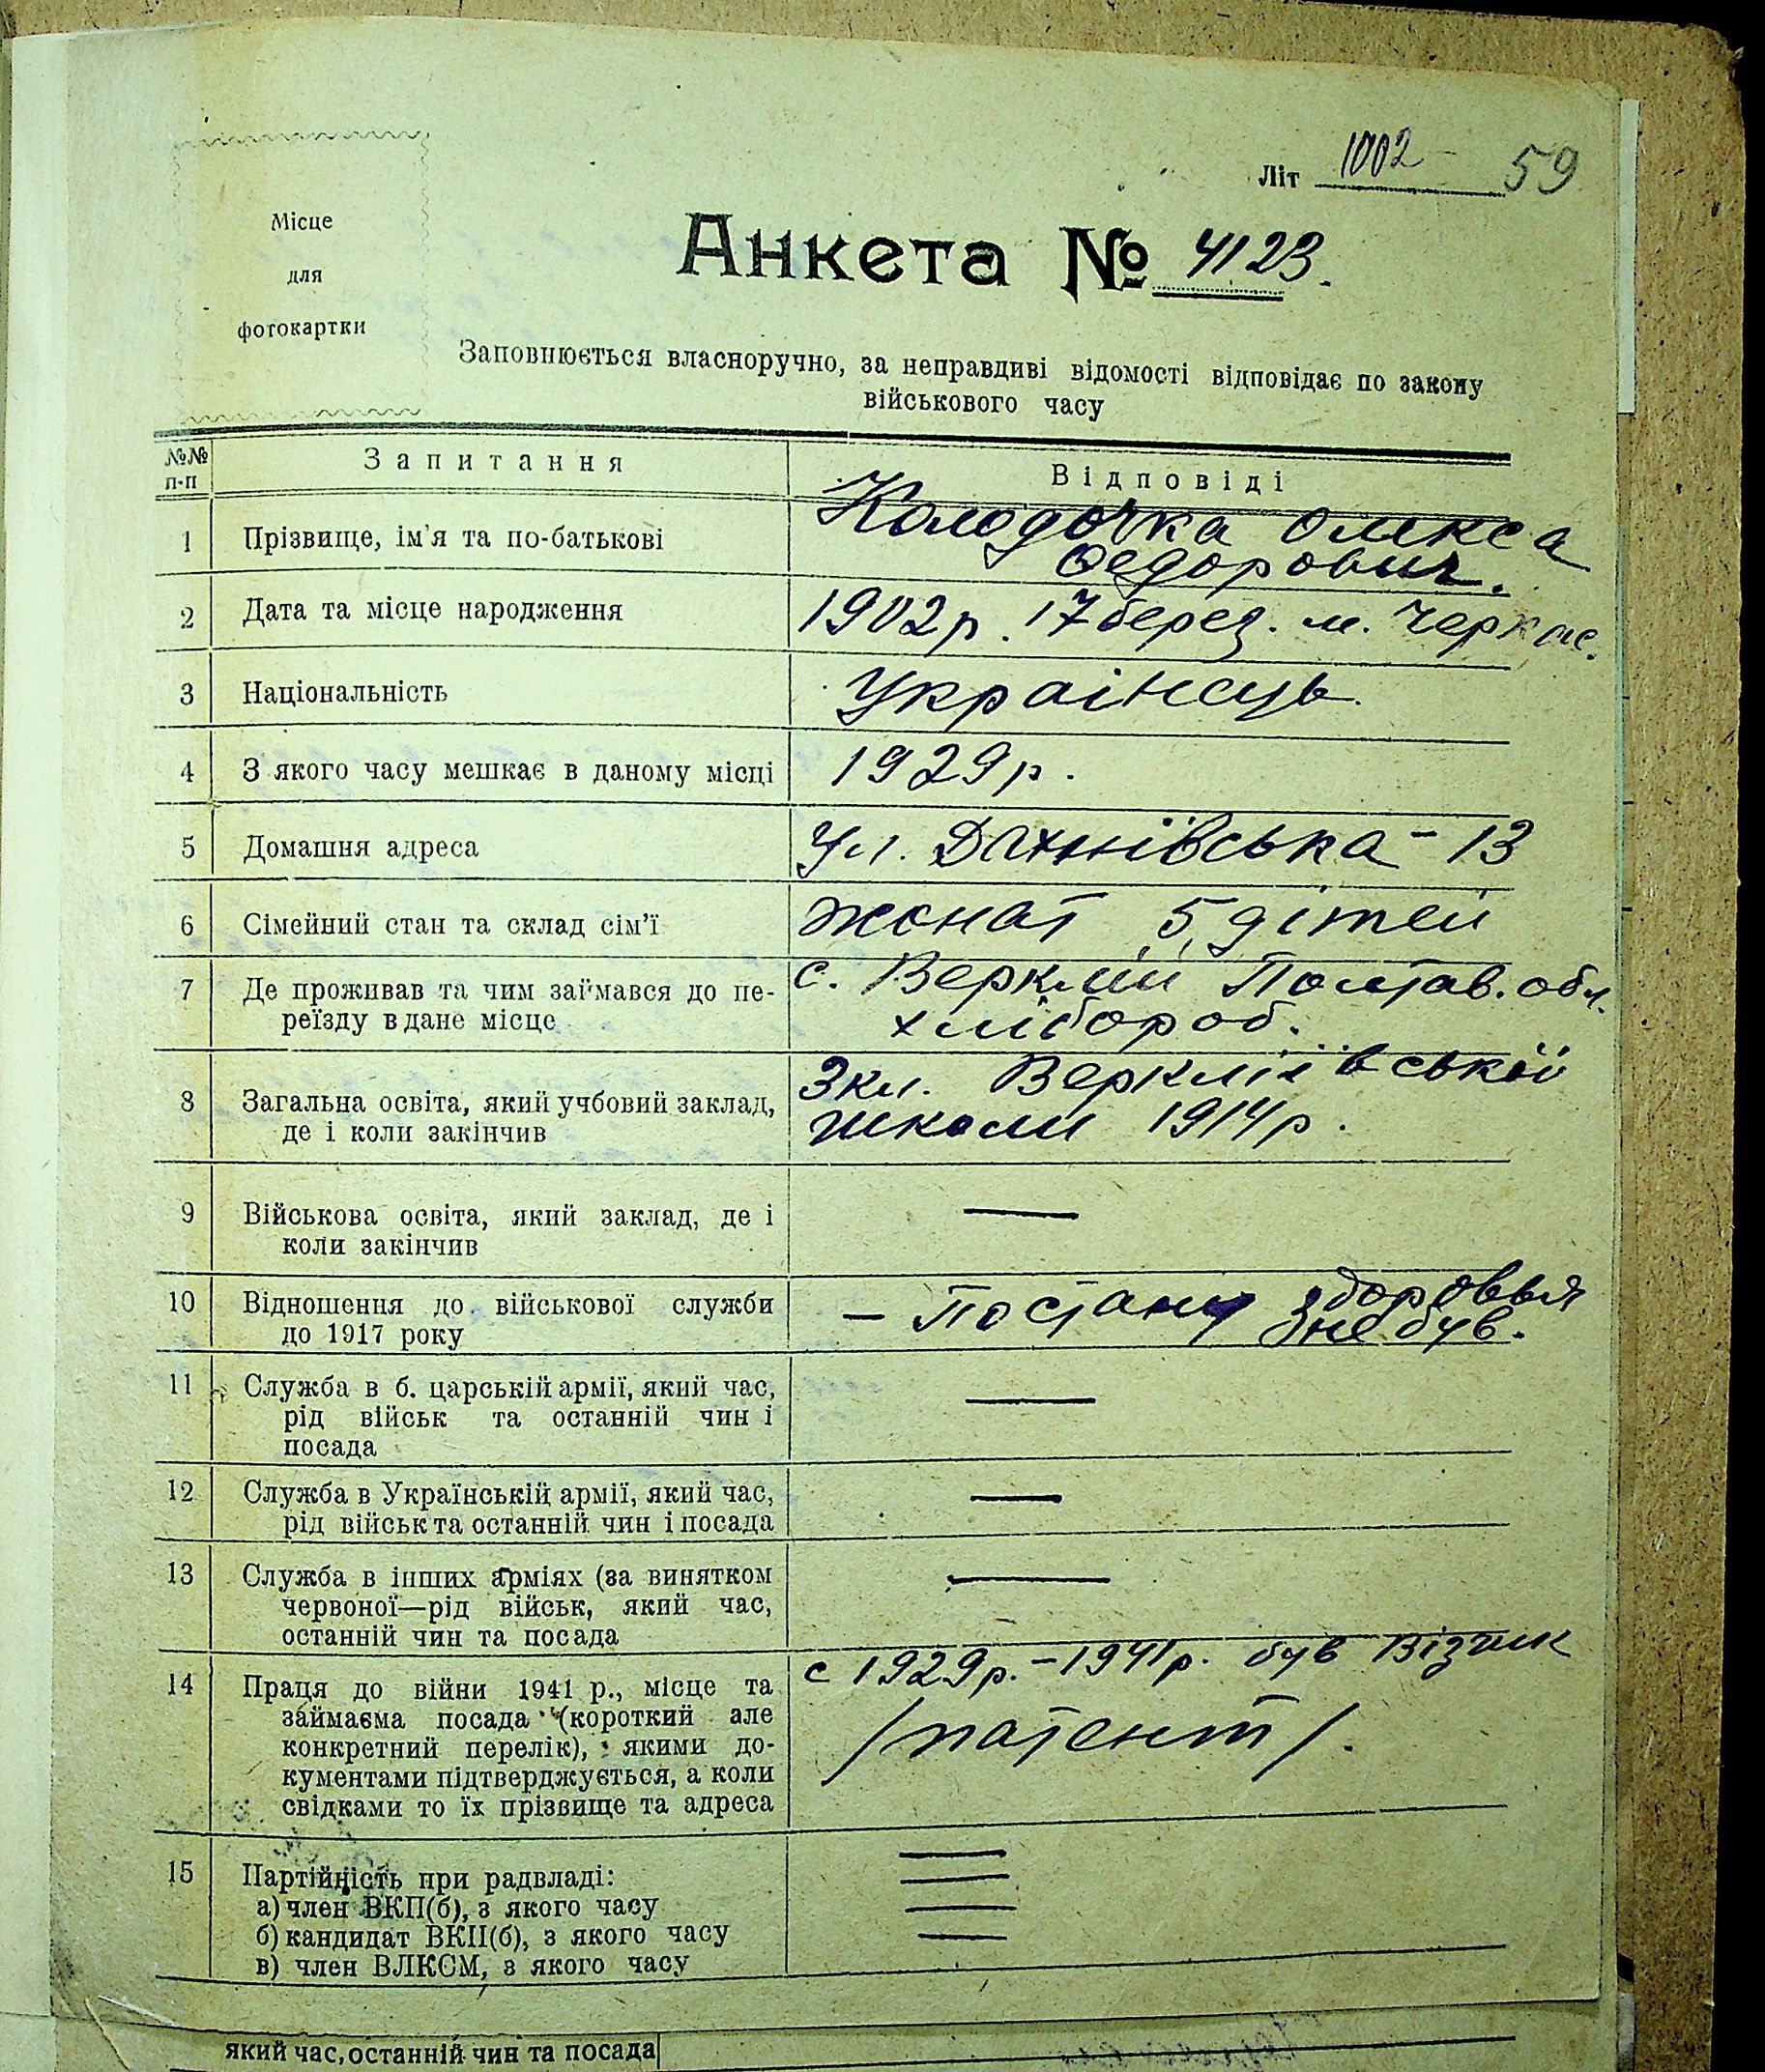 Літ 1002 - 59
Місце
для
фотокартки
Анкета № 4123.
Заповнюється власноручно, за неправдиві відомості відповідає по закону
військового часу
№№
п-п
Запитання
Відповіді
1 Прізвище, ім'я та по-батькові
Колодочка Олекса
Федорович.
2 Дата та місце народження
1902р. 17 берез. м. Черкас.
3 Національність
Українець.
4 З якого часу мешкає в даному місці
1929р.
5 Домашня адреса
Ул. Дахнівська - 13
6 Сімейний стан та склад сім'ї
жонат 5 дітей
7 Де проживав та чим займався до пе-
реїзду в дане місце
с. Верклій Полтав. обл.
хлібороб.
8 Загальна освіта, який учбовий заклад,
де і коли закінчив
3кл. Веркліївської
школи 1914р.
9 Військова освіта, який заклад, де і
коли закінчив
—
10 Відношення до військової служби
до 1917 року
— По стану здоровья
не був.
11 Служба в б. царській армії, який час,
рід військ та останній чин і
посада
—
12 Служба в Українській армії, який час,
рід військ та останній чин і посада
—
13 Служба в інших арміях (за винятком
червоної—рід військ, який час,
останній чин та посада
—
14 Праця до війни 1941 р., місце та
займаєма посада (короткий але
конкретний перелік), якими до-
кументами підтверджується, а коли
свідками то їх прізвище та адреса
с 1929р. - 1941р. був Візчик
/патент/.
15 Партійність при радвладі:
а) член ВКП(б), з якого часу
б) кандидат ВКП(б), з якого часу
в) член ВЛКСМ, з якого часу
—
—
—
—
який час, останній чин та посада